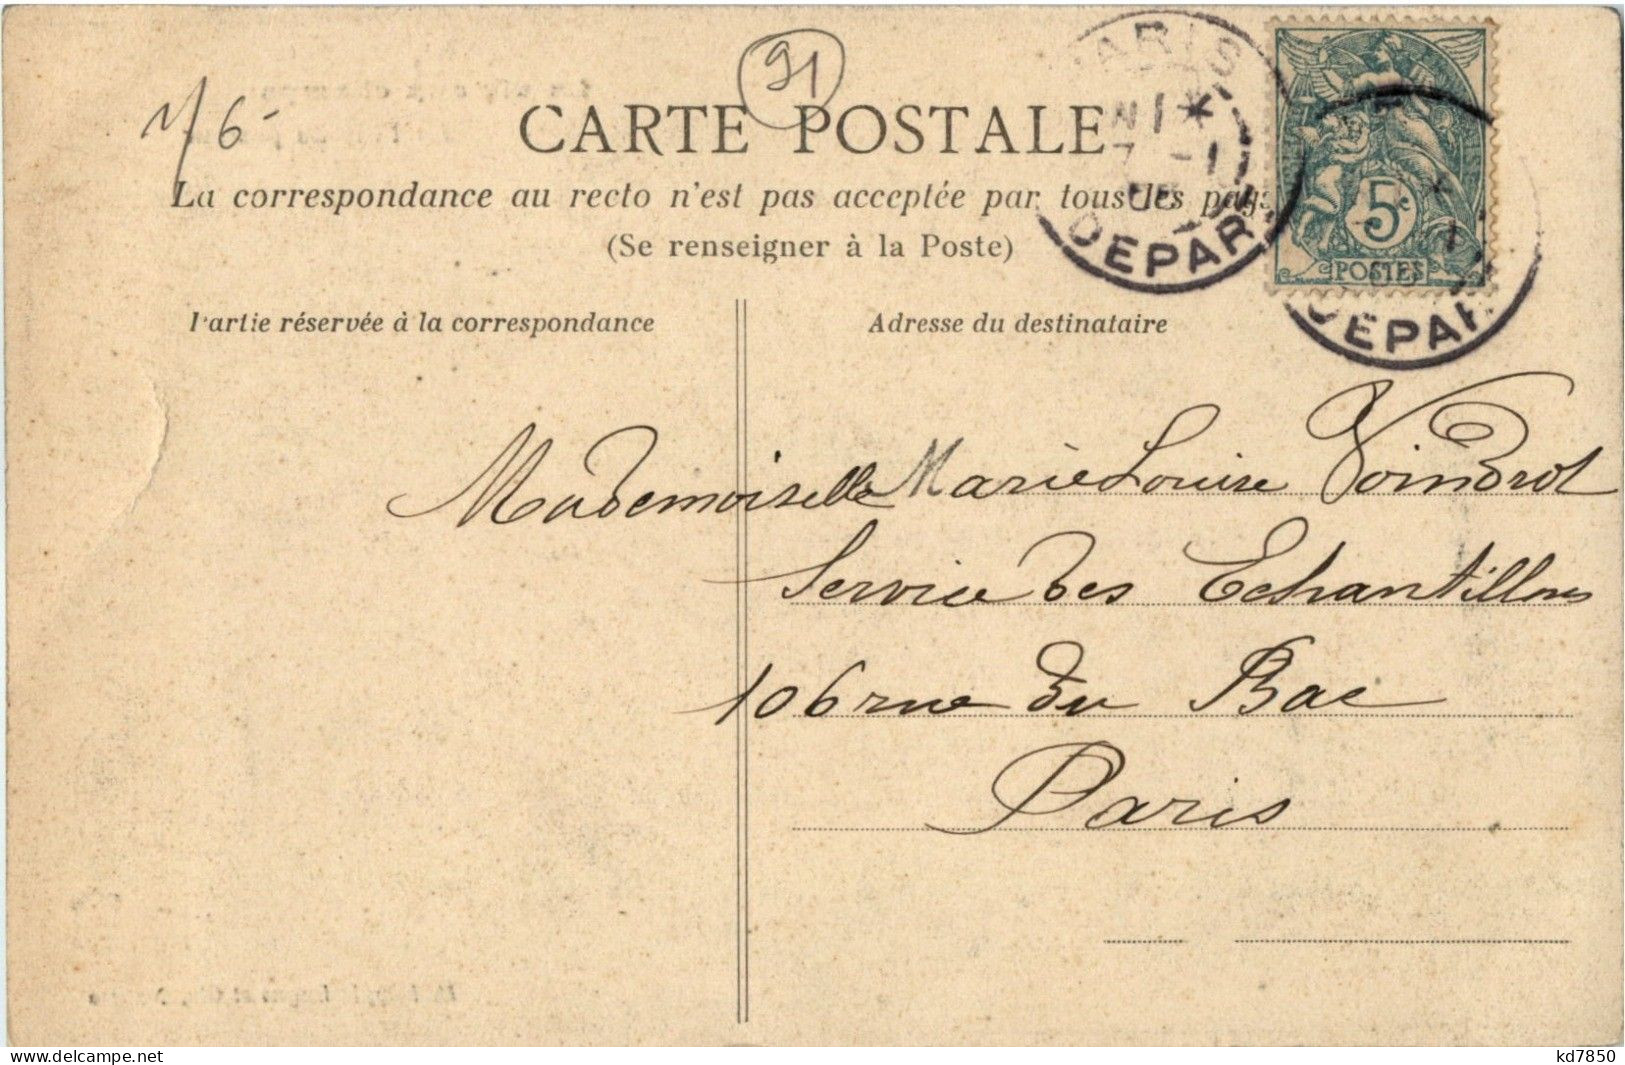 91
CARTE POSTALE
La correspondance au recto n'est pas acceptée par tous les pays
(Se renseigner à la Poste)
Partie réservée à la correspondance
Adresse du destinataire
PARIS
DEPART
5c
POSTES
DEPART
Mademoiselle Marie Louise Voindrot
Service des Echantillons
106 rue du Bac
Paris
www.delcampe.net
kd7850